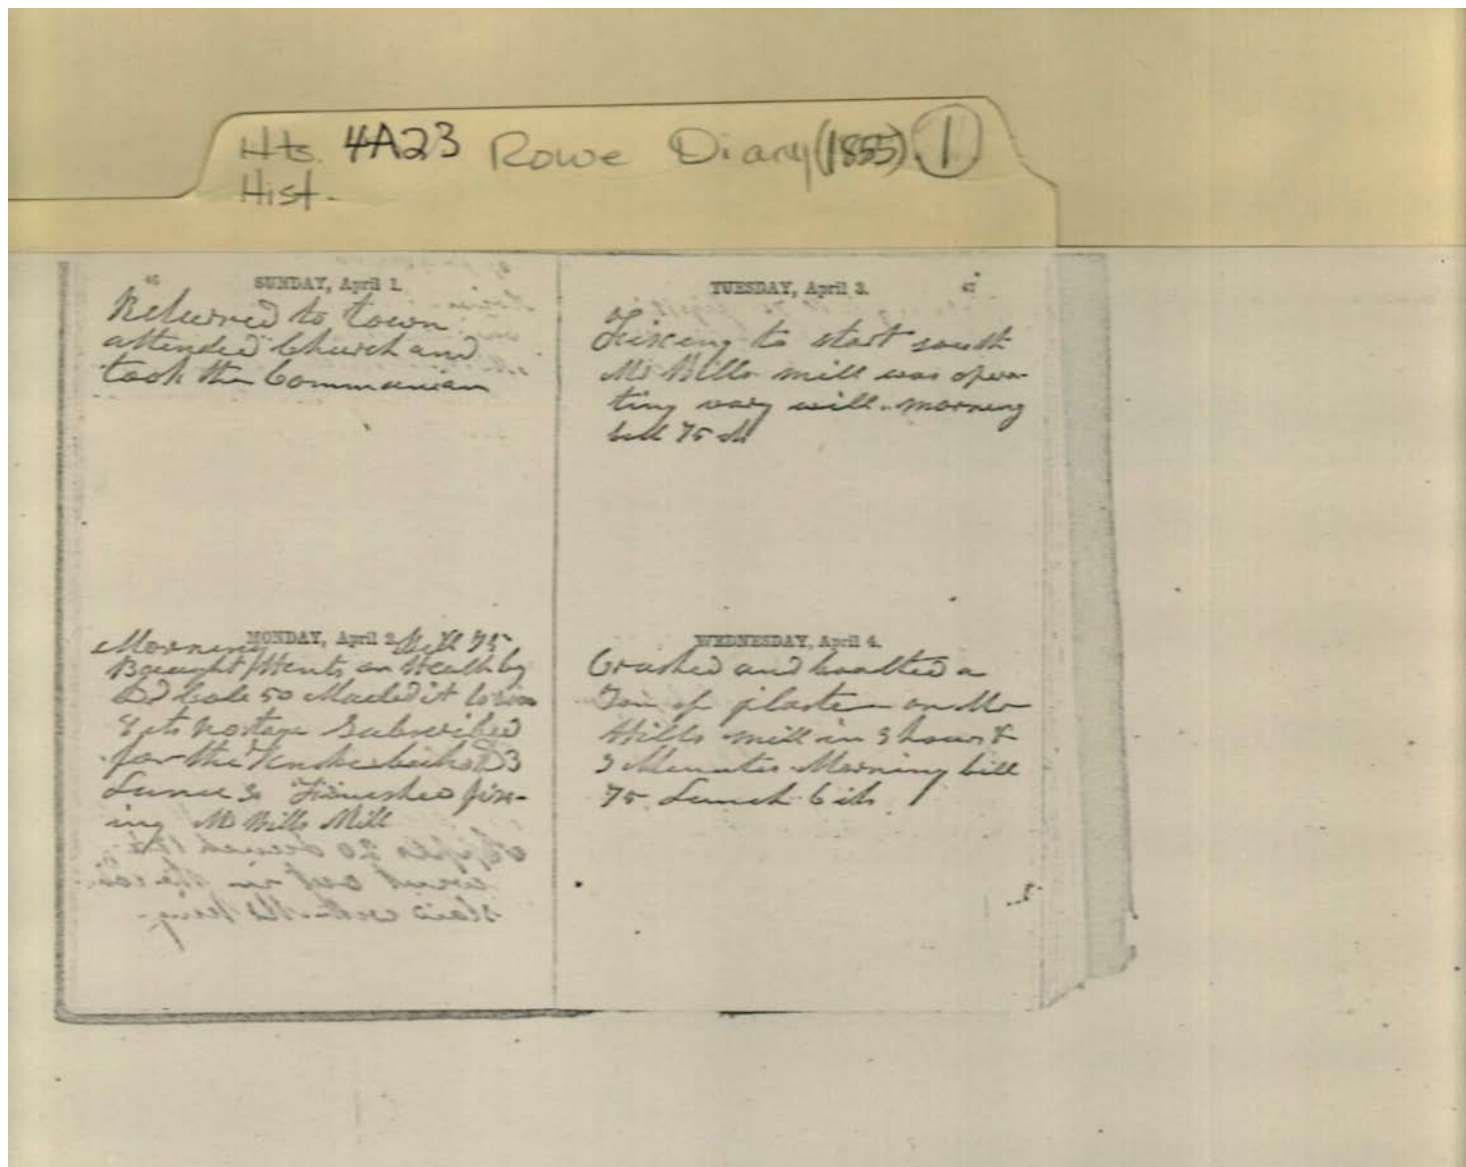 Hts. 4A23 Rowe Diary (1855) 1
Hist.
46
SUNDAY, April 1.
Returned to town
attended Church and
took the Communian
MONDAY, April 2.
Morning Bill 75
Bought Hints on Health by
50 Mailed it
8 cts Postage Subscribed
for the Knickerbocker 3
Finished fixe-
ing Mr Hills Mill
TUESDAY, April 3.
47
Fixeing to start south
Mr Hills mill was opera-
ting vary well. morning
bill 75 cts
WEDNESDAY, April 4.
Crashed and boalted a
Ton of plaster on Mr
Hills mill in 3 hours &
3 Menutes Morning bill
75 Lunch 6 cts